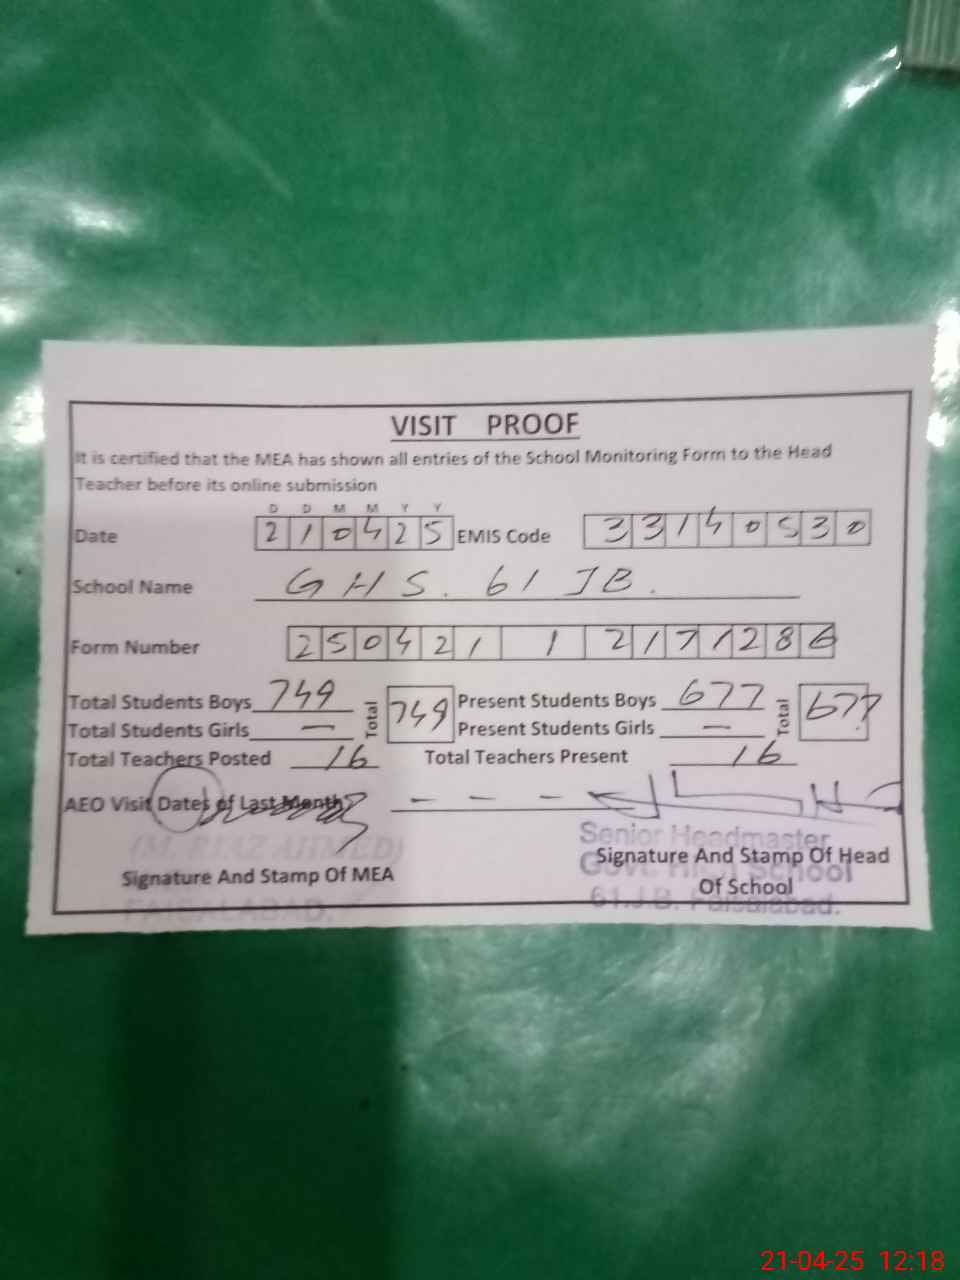 VISIT PROOF
It is certified that the MEA has shown all entries of the School Monitoring Form to the Head
Teacher before its online submission
D D M M Y Y
Date 2 1 0 4 2 5 EMIS Code 3 3 1 4 0 5 3 0
School Name GHS. 61 JB.
Form Number 2 5 0 4 2 1 1 2 1 7 1 2 8 6
Total Students Boys 749 Total 749 Present Students Boys 677 Total 677
Total Students Girls — Present Students Girls —
Total Teachers Posted 16 Total Teachers Present 16
AEO Visit Dates of Last Month - - -
(M. RIAZ AHMED) Senior Headmaster
Signature And Stamp Of MEA Signature And Stamp Of Head
Govt. High School
Of School
FAISALABAD. 61.J.B. Faisalabad.
21-04-25 12:18